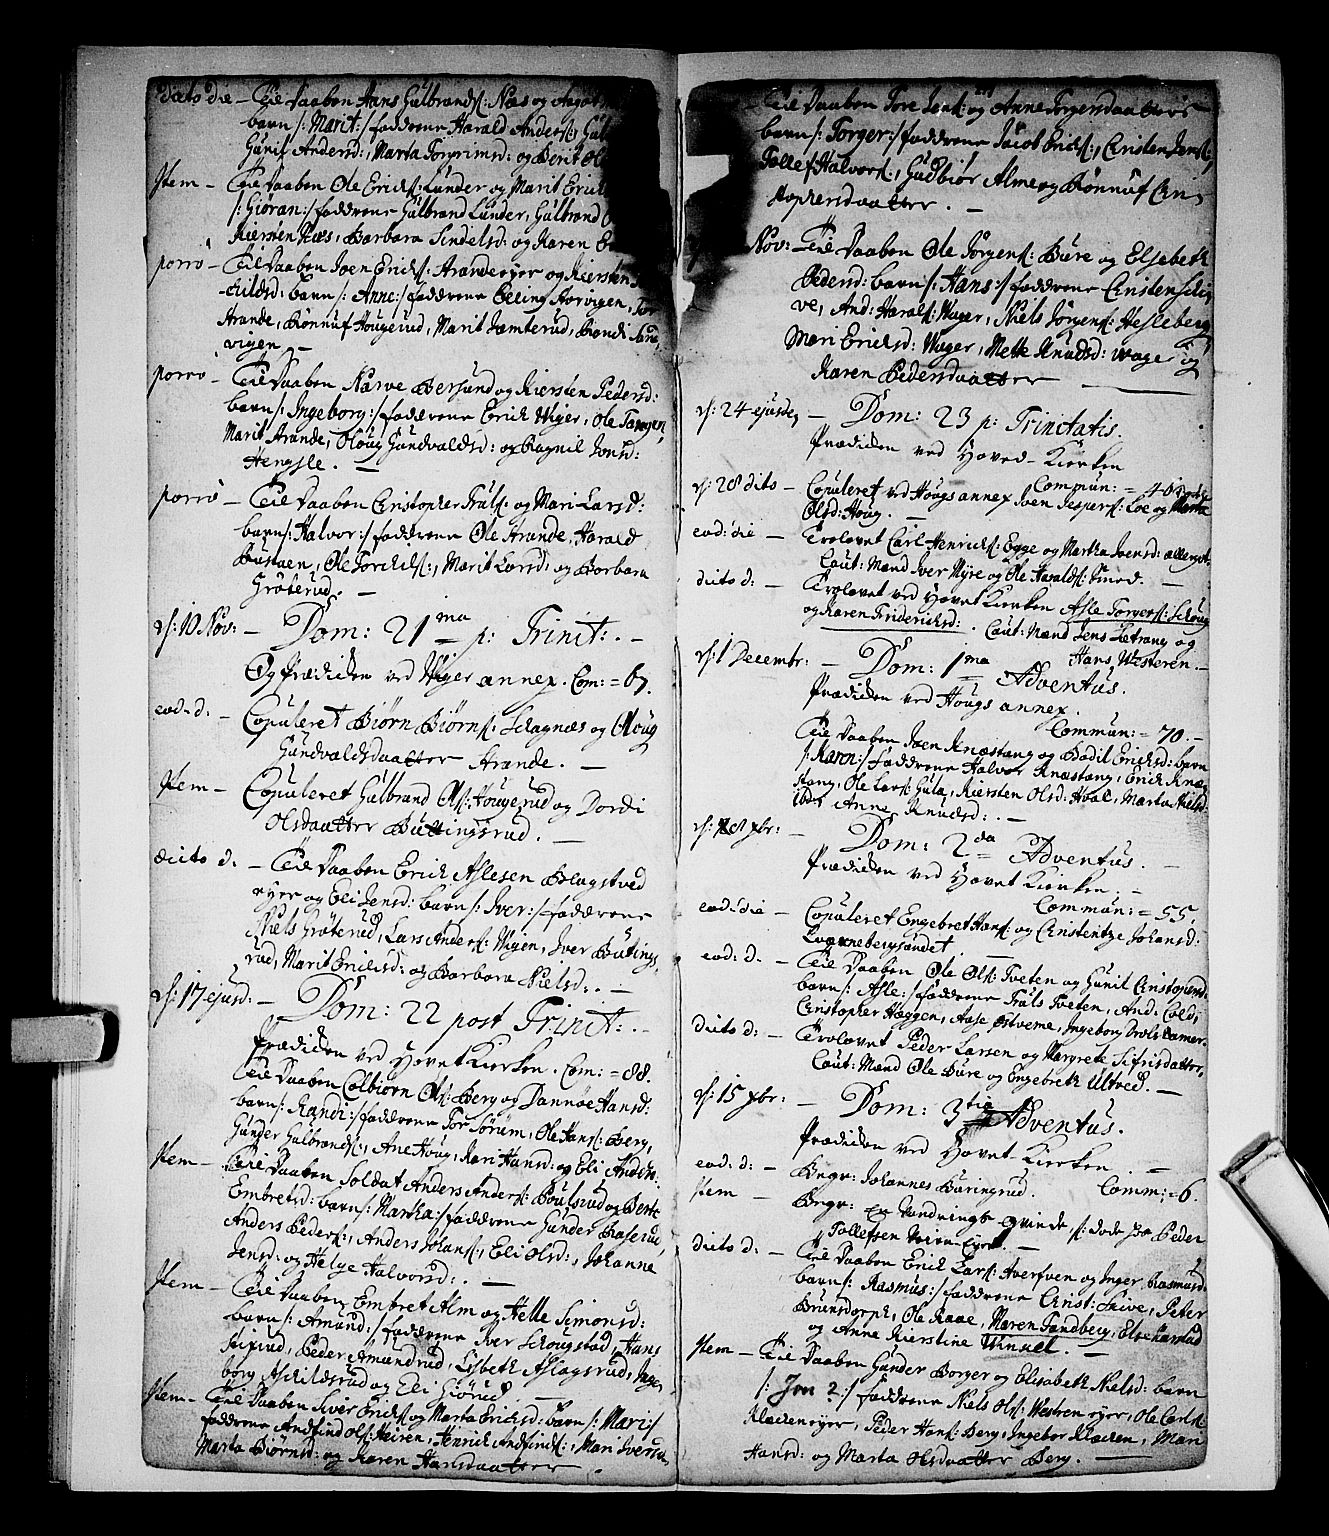 dicto die – Til Daaben Hans Gulbrands: Næs og Aagot
barn /: Marit :/ fadderne Harald Anders:, Gul
Gunil Andersd:, Marta Torgrimsd: og Berit Ol
Item – Til Daaben Ole Ericks: Lunder og Marit Erick
/: Giøran :/ fadderne Gulbrand Lunder, Gulbrand
Kiersten Næs, Barbara Sindelsd: og Karen
porrò – Til Daaben Joen Ericks: Arandeeyer og Kiersten
barn /: Anne :/ fadderne Elling Horvigen, Tor
Arande, Rønnuf Hougerud, Marit Jamterud, Randi
vigen –
porrò – Til Daaben Narve Bersund og Kiersten Pedersd:
barn /: Ingeborg :/ fadderne Erick Wiger, Ole
Marit Arande, Oloug Gundvaldsd: og Ragnil Jonsd:
Hengsle. –
porrò – Til Daaben Cristopher Truls: og Mari Larsd:
barn /: Halvor :/ fadderne Ole Arande, Harald
Bustaen, Ole Torchels:, Marit Larsd: og Barbara
Grøterud. –
d: 10 Nov: – Dom: 21 ma p: Trinit: . –
Og Prædiken ved Wiger annex. Com: = 67.
eod. d: – Copuleret Biørn Biørns: Schagnæs og Oloug
Gundvaldsdaatter Arande. –
Item – Copuleret Gulbrand Ols: Hougerud og Dordi
Olsdaatter Buttingsrud. –
dicto d: – Til Daaben Erick Aslesen Blagstved
eyer og Eli Jensd: barn /: Iver :/ fadderne
Niels Grøterud, Lars Anders: Wigen, Iver Butings
rud, Marit Ericksd: og Barbara Nielsd: . –
d: 17 ejusd: – Dom: 22 post Trinit: . –
Prædiken ved Hovet Kierken. Com: = 88.
Til Daaben Colbiørn Ols: Berg og Dannøe Hansd:
barn /: Randi :/ fadderne Tor Sørum, Ole Hans: Berg,
Gunder Gulbrands:, Ane Houg, Kari Hansd: og Eli Andersd:
Item – Til Daaben Soldat Anders Anders: Boulsrud og Berte
Embretsd: barn /: Martha :/ fadderne Gunder Raserud,
Anders Peders:, Anders Johans:, Eli Olsd:, Johanne
Jensd: og Helge Halvorsd: . –
Item – Til Daaben Embret Alm og Helle Simonsd:
barn /: Amund :/ fadderne Iver Schougstad, Hans
Peder Amundrud, Lisbeth Aslagsrud, Inge
borg Askildsrud og Eli Giørud –
Item – Til Daaben Siver Ericks: og Marta Ericksd: barn /: Mari :/
fadderne Andfind Ols: Heiren, Henrick Andfinds:, Mari Iversd:
Marta Biørnsd: og Karen Hansdaatter
Til Daaben Tore Jens: og Anne Torgersdaatters
barn /: Torger :/ fadderne Jacob Ericks:, Cristen Jens:,
Tollef Halvors:, Gudbiør Alme og Rønnuf Cri
stophersdaatter. –
Nov: – Til Daaben Ole Jørgens: Bure og Elsebeth
Pedersd: barn /: Hans :/ fadderne Cristen Schi
ve, And: Harals: Wager, Niels Jørgens: Hesleberg,
Mari Ericksd: Wager, Mette Knudsd: Wager og
Karen Pedersdaatter –
d: 24 ejusde, – Dom: 23 p: Trinitatis.
Prædiken ved Hoved-Kierken
Commun: = 40
d: 28 dito – Copuleret ved Hougs annex Iven Jespers: Loe og Marta
Olsd: Houg. –
eod: die – Trolovet Carl Henricks: Egge og Martha Joensd:
Caut: Mænd Iver Myre og Ole Haralds: Smed. –
dicto d: – Trolovet ved Hovet Kierken Asle Torgers: Schoug
og Karen Fridericksd: . Caut: Mænd Jens Letrang og
Hans Westeren. –
d: 1 Decembr: – Dom: 1 ma Adventus.
Prædiken ved Hougs annex.
Commun: = 70. –
Til Daaben Joen Knæstang og Bodil Ericksd: barn
/: Karen :/ fadderne Halvor Knæstang, Erick Knæ,
stang, Ole Lars: Gula, Kiersten Olsd: Hval, Marta Nielsd:
ibd: Anne Knudsd: . –
d: 8 xbr: – Dom: 2 da Adventus. –
Prædiken ved Hovet Kierken. –
Commun: = 55.
eod: die – Copuleret Engebret Hans: og Cristentze Johansd:
Qvernebergsundet –
eod: d: – Til Daaben Ole Ols: Tveten og Gunil Cristophersd:
barn /: Asle :/ fadderne Truls Tveten, And: Cold,
Cristopher Heggen, Aase Ostveme, Ingeborg
dicto d: – Trolovet Peder Larsen og Margrete Sifrisdatter,
Caut: Mænd Ole Bure og Engebreth Ultved. –
d: 15 xbr: – Dom: 3 tia Adventus.
Prædiken ved Hovet Kierken. –
eod: d: – Begr: Johannes Buringrud. Comm: = 6.
Item – Begr: en Vandrings Qvinde, /: døde paa Peder
Tollefsen
dicto d: – Til Daaben Erick Lars: Averfven og Inger Rasmusd:
barn /: Rasmus :/ fadderne Crist: Skive, Peter
Brunsdorph, Ole Raae, Maren Tandberg, Else
og Anne Kierstine Winnel. –
Item – Til Daaben Gunder Borger og Elisabeth Nielsd: barn
/: Jon 2 :/ fadderne Niels Ols: Westren eyer, Ole Carls:
Klecken eyer, Peder Hans: Berg, Ingebor Klecken, Mari
Hansd: og Marta Olsdaatter Berg. –